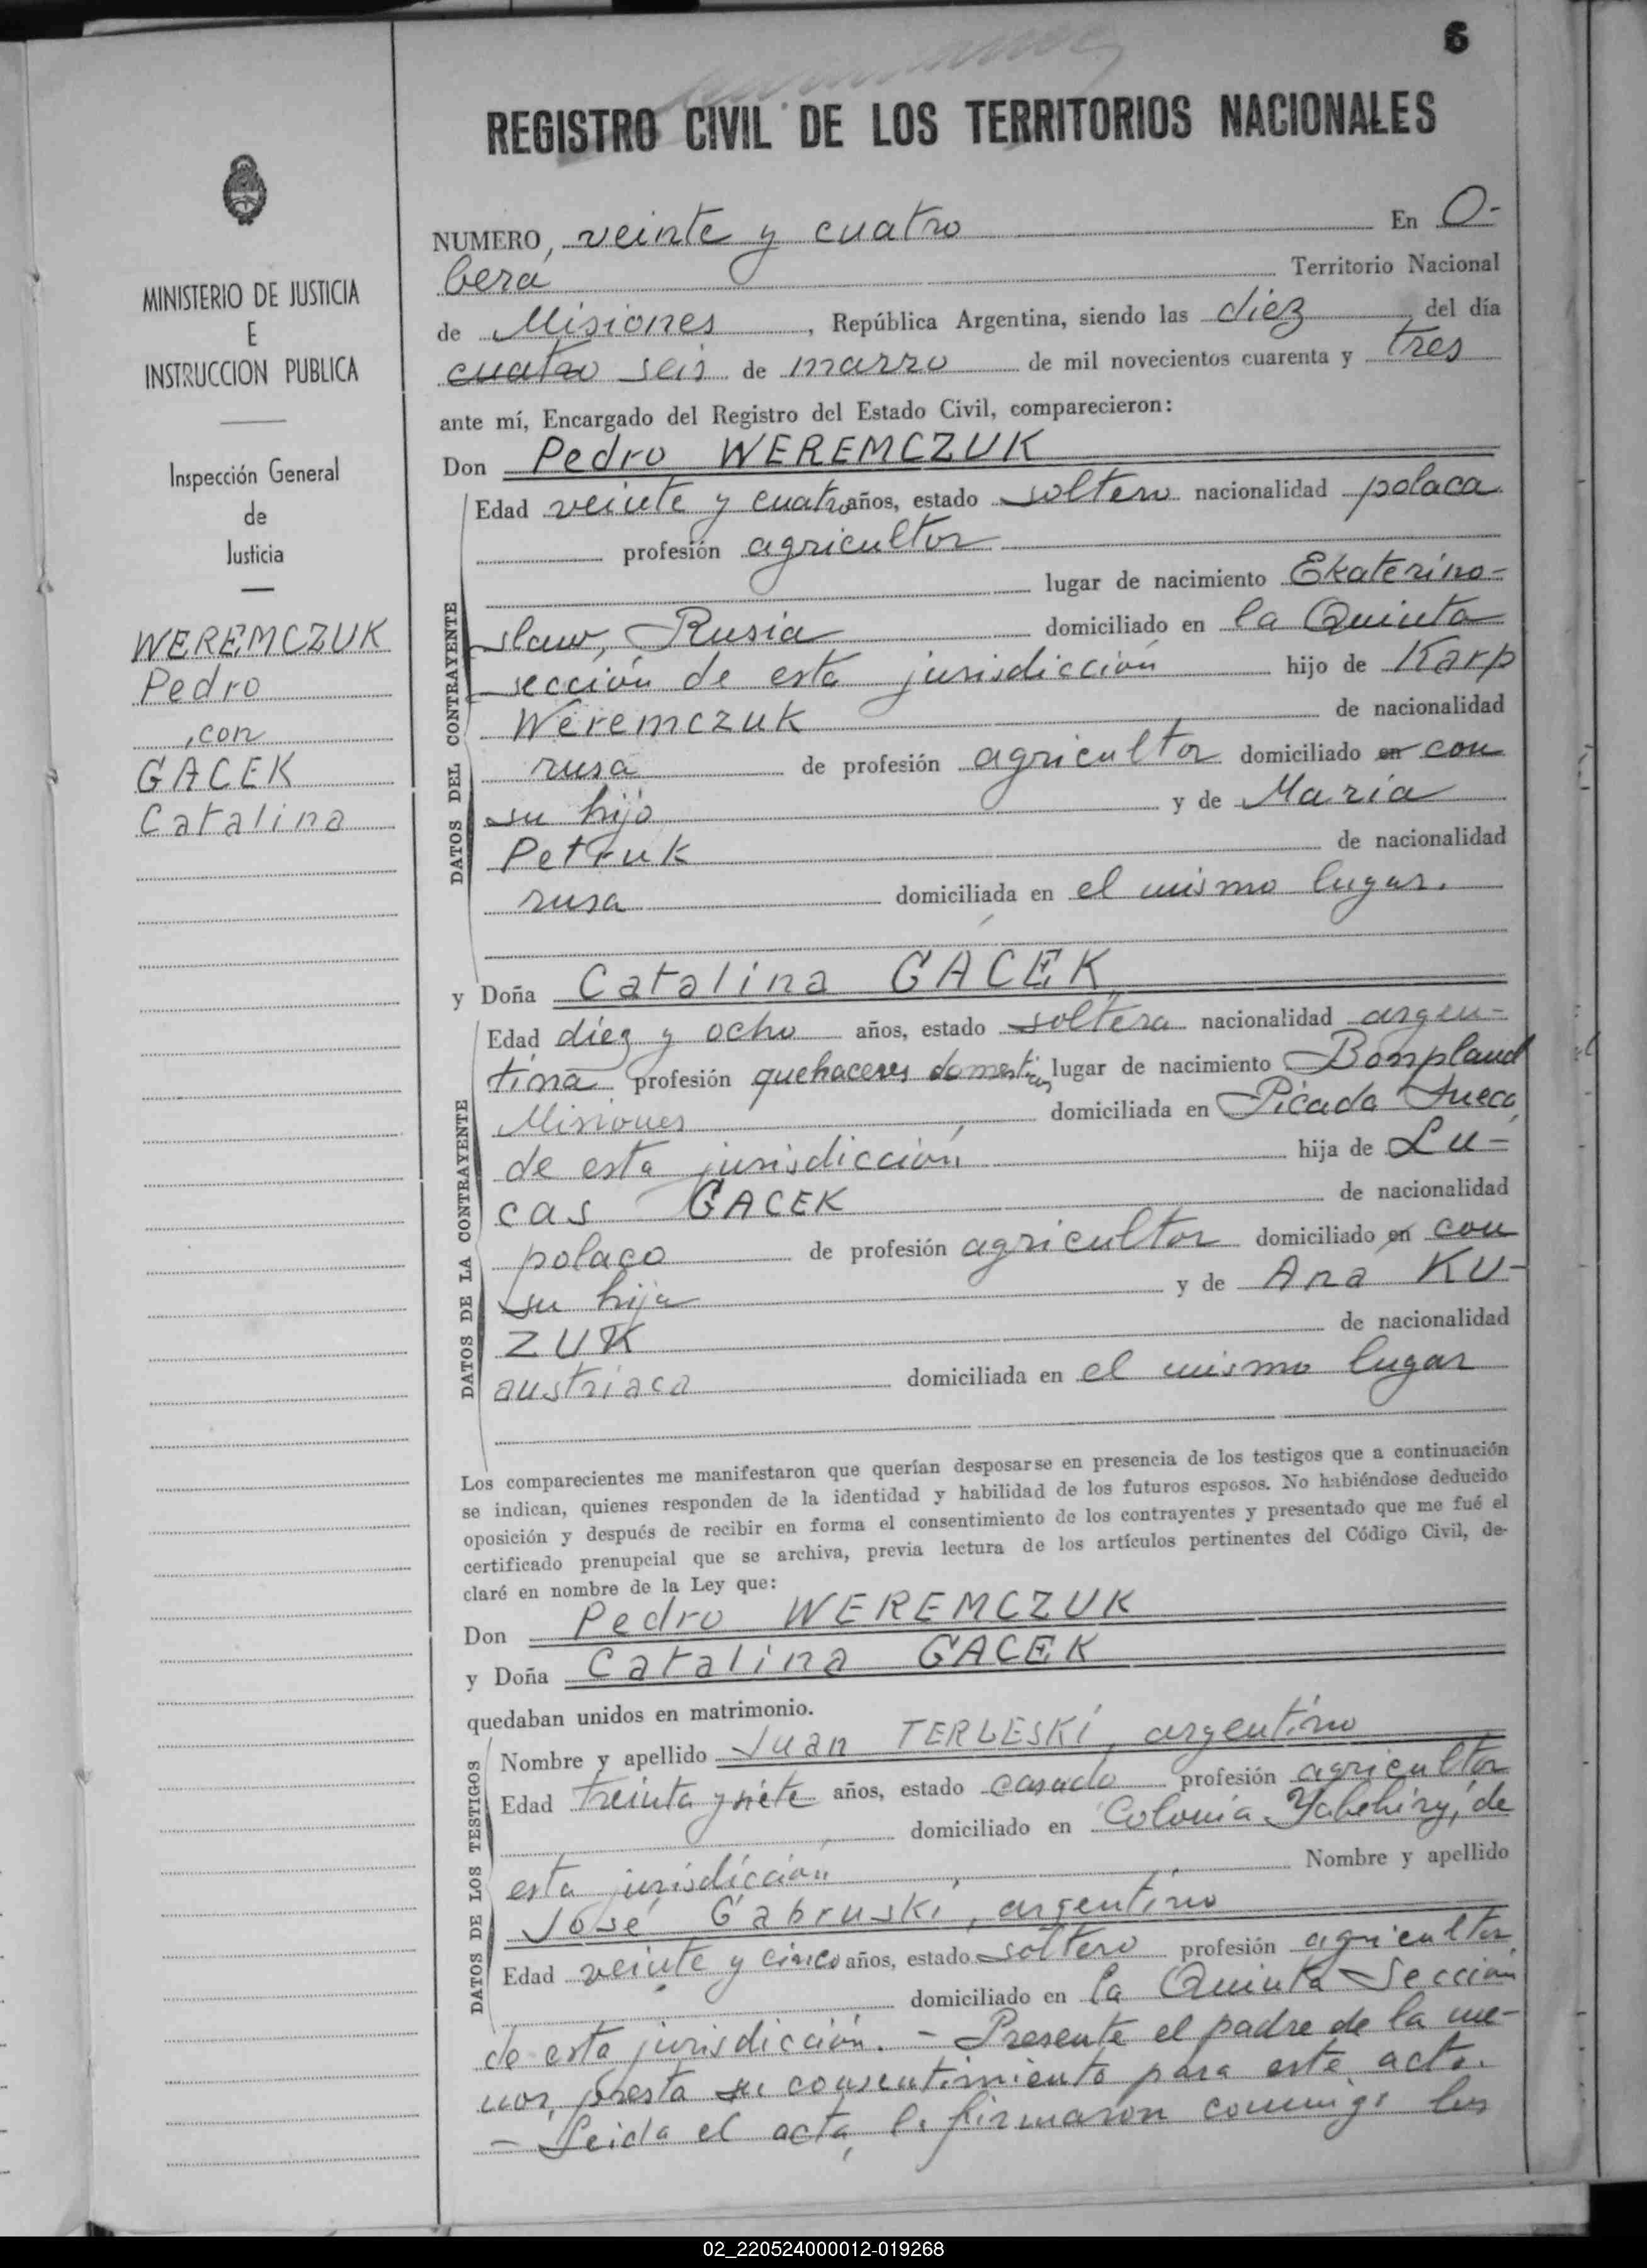 6
REGISTRO CIVIL DE LOS TERRITORIOS NACIONALES
MINISTERIO DE JUSTICIA
E
INSTRUCCION PUBLICA
Inspección General
de
Justicia
WEREMCZUK
Pedro
, con
GACEK
Catalina
NUMERO, veinte y cuatro En O-
berá Territorio Nacional
de Misiones, República Argentina, siendo las diez del día
cuatro seis de marzo de mil novecientos cuarenta y tres
ante mí, Encargado del Registro del Estado Civil, comparecieron:
Don Pedro WEREMCZUK
DATOS DEL CONTRAYENTE
Edad veinte y cuatro años, estado soltero nacionalidad polaca
profesión agricultor
lugar de nacimiento Ekaterino-
slaw, Rusia domiciliado en la Quinta
sección de esta jurisdicción hijo de Karp
Weremczuk de nacionalidad
rusa de profesión agricultor domiciliado en con
su hijo y de María
Petruk de nacionalidad
rusa domiciliada en el mismo lugar.
y Doña Catalina GACEK
DATOS DE LA CONTRAYENTE
Edad diez y ocho años, estado soltera nacionalidad argen-
tina profesión quehaceres domesticos lugar de nacimiento Bonpland
Misiones domiciliada en Picada Sueca,
de esta jurisdicción hija de Lu-
cas GACEK de nacionalidad
polaco de profesión agricultor domiciliado en con
su hija y de Ana KU-
ZUK de nacionalidad
austriaca domiciliada en el mismo lugar
Los comparecientes me manifestaron que querían desposarse en presencia de los testigos que a continuación
se indican, quienes responden de la identidad y habilidad de los futuros esposos. No habiéndose deducido
oposición y después de recibir en forma el consentimiento de los contrayentes y presentado que me fué el
certificado prenupcial que se archiva, previa lectura de los artículos pertinentes del Código Civil, de-
claré en nombre de la Ley que:
Don Pedro WEREMCZUK
y Doña Catalina GACEK
quedaban unidos en matrimonio.
DATOS DE LOS TESTIGOS
Nombre y apellido Juan TERLESKI, argentino
Edad treinta y siete años, estado casado profesión agricultor
domiciliado en Colonia Yabebiry, de
esta jurisdicción Nombre y apellido
José Gabruski, argentino
Edad veinte y cinco años, estado soltero profesión agricultor
domiciliado en la Quinta Sección
de esta jurisdicción. - Presente el padre de la me-
nor, presta su consentimiento para este acto.
- Leida el acta, la firmaron conmigo los
02_220524000012-019268